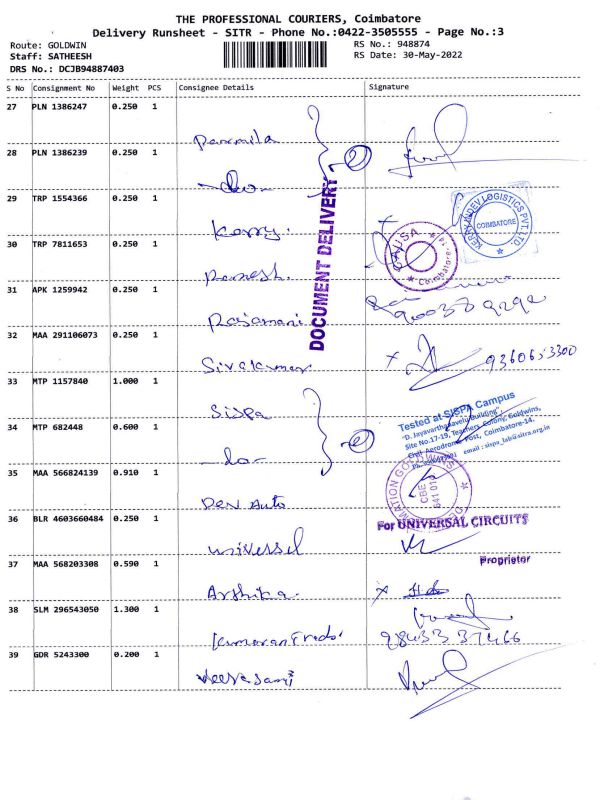 THE PROFESSIONAL COURIERS, Coimbatore
Delivery Runsheet - SITR - Phone No.:0422-3505555 - Page No.:3
Route: GOLDWIN
Staff: SATHEESH
DRS No.: DCJB94887403
RS No.: 948874
RS Date: 30-May-2022
S No Consignment No Weight PCS Consignee Details Signature
27 PLN 1386247 0.250 1
Parmila
28 PLN 1386239 0.250 1
-do-
2
DOCUMENT DELIVERY
29 TRP 1554366 0.250 1
Karry.
KERRY INDEV LOGISTICS PVT. LTD
COIMBATORE
30 TRP 7811653 0.250 1
Ramesh.
Coimbatore
31 APK 1259942 0.250 1
Rajamani
32 MAA 291106073 0.250 1
Sivakumar
x
33 MTP 1157840 1.000 1
Sispa
34 MTP 682448 0.600 1
-do-
2
Tested at SISPA Campus
"D. Jayavarthanavelu Building",
Site No.17-19, Teachers Colony, Goldwins,
Civil Aerodrome Post, Coimbatore-14.
email : sispa_lab@sitra.org.in
35 MAA 566824139 0.910 1
Dev Auto
CBE
641 014
36 BLR 4603660484 0.250 1
Universel
For UNIVERSAL CIRCUITS
Proprietor
37 MAA 568203308 0.590 1
Arthika.
x
38 SLM 296543050 1.300 1
39 GDR 5243300 0.200 1
Veerasami